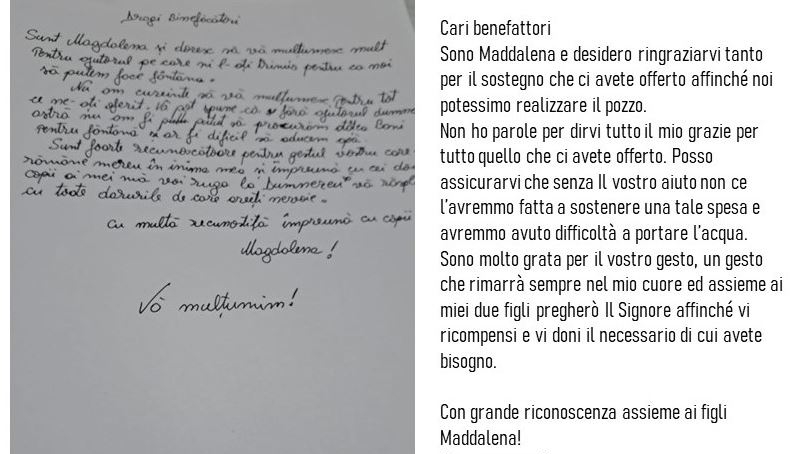 Dragi Binefăcători
Sunt Magdalena și doresc să vă mulțumesc mult
Pentru ajutorul pe care ni l-ați trimis pentru ca noi
să putem face fântâna.
Nu am cuvinte să vă mulțumesc Pentru tot
ce ne-ați oferit. Vă pot spune că fără ajutorul dumne
astră nu am fi putut să procurăm atâea Bani
Pentru fântână și ar fi dificil să aducem apă.
Sunt foarte recunoscătoare pentru gestul vostru care
rămâne mereu în inima mea și împreună cu cei doi
copii ai mei mă voi ruga la Dumnezeu vă răspl
cu toate darurile de care aveți nevoie.
Cu multă recunoștiță împreună cu copii
Magdalena!
Vă mulțumim!
Cari benefattori
Sono Maddalena e desidero ringraziarvi tanto
per il sostegno che ci avete offerto affinché noi
potessimo realizzare il pozzo.
Non ho parole per dirvi tutto il mio grazie per
tutto quello che ci avete offerto. Posso
assicurarvi che senza Il vostro aiuto non ce
l'avremmo fatta a sostenere una tale spesa e
avremmo avuto difficoltà a portare l'acqua.
Sono molto grata per il vostro gesto, un gesto
che rimarrà sempre nel mio cuore ed assieme ai
miei due figli pregherò Il Signore affinché vi
ricompensi e vi doni il necessario di cui avete
bisogno.
Con grande riconoscenza assieme ai figli
Maddalena!